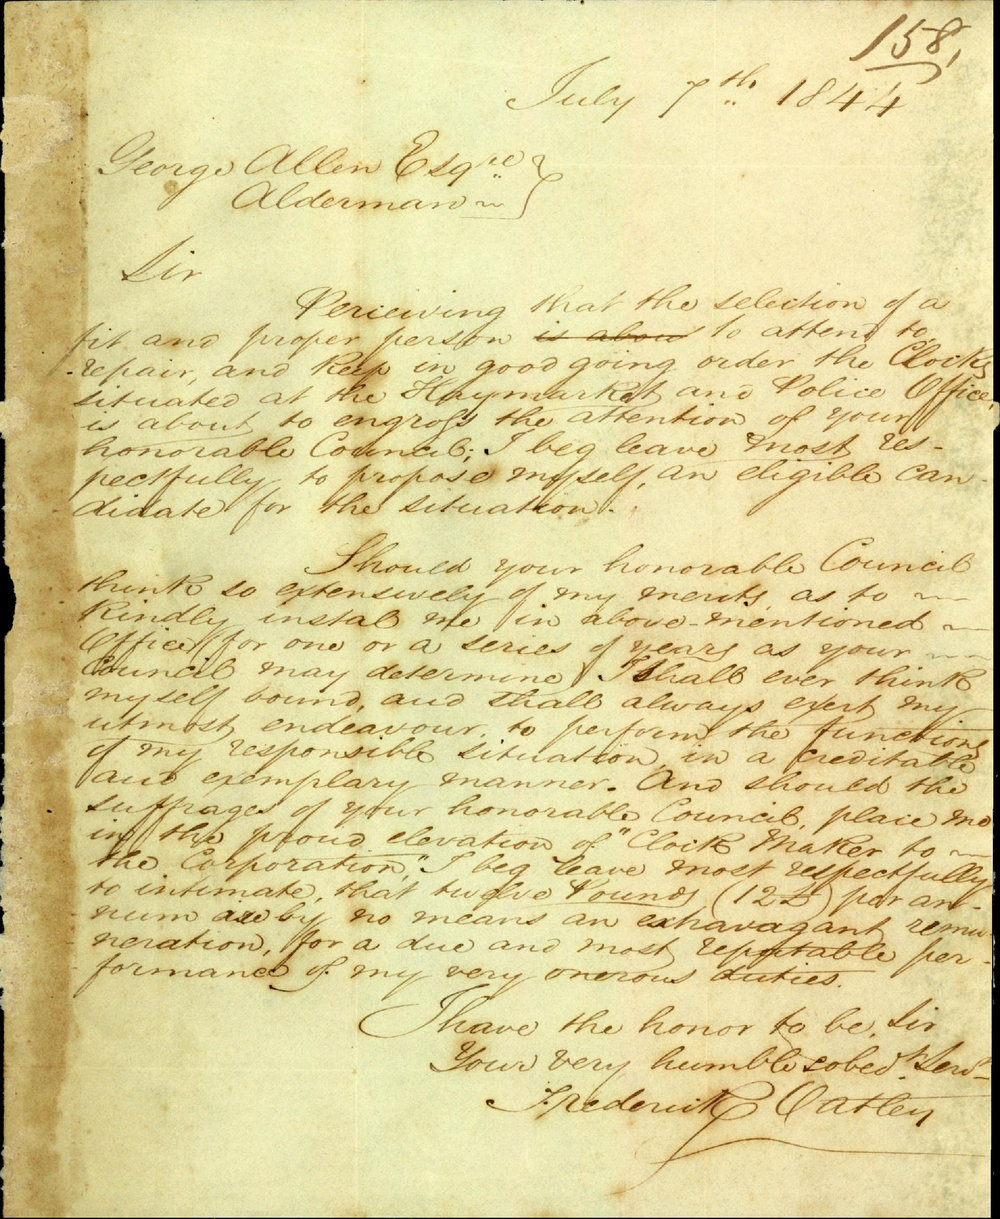 158,
July 7th 1844
George Allen Esqre
Alderman
Sir
Perceiving that the selection of a
fit and proper person is abou to attend to,
repair, and keep in good going order the Clocks
situated at the Haymarket and Police Office,
is about to engross the attention of your
honorable Council; I beg leave most res-
pectfully to propose myself, an eligible can-
didate for the situation.
Should your honorable Council
think so extensively of my merits, as to
kindly instal me in above-mentioned
Office (for one or a series of years as your
Council may determine) I shall ever think
myself bound, and shall always exert my
utmost endeavour, to perform the functions
of my responsible situation, in a creditable
and exemplary manner. And should the
suffrages of your honorable Council, place me
in the proud elevation of "Clock Maker to
the Corporation," I beg leave most respectfully
to intimate, that twelve Pounds, (12£) per an-
num are by no means an exhavagant remu-
neration, for a due and most reputable per-
formance of my very onerous duties.
I have the honor to be, Sir
Your very humble & obedt. Servt
Frederick Oatley